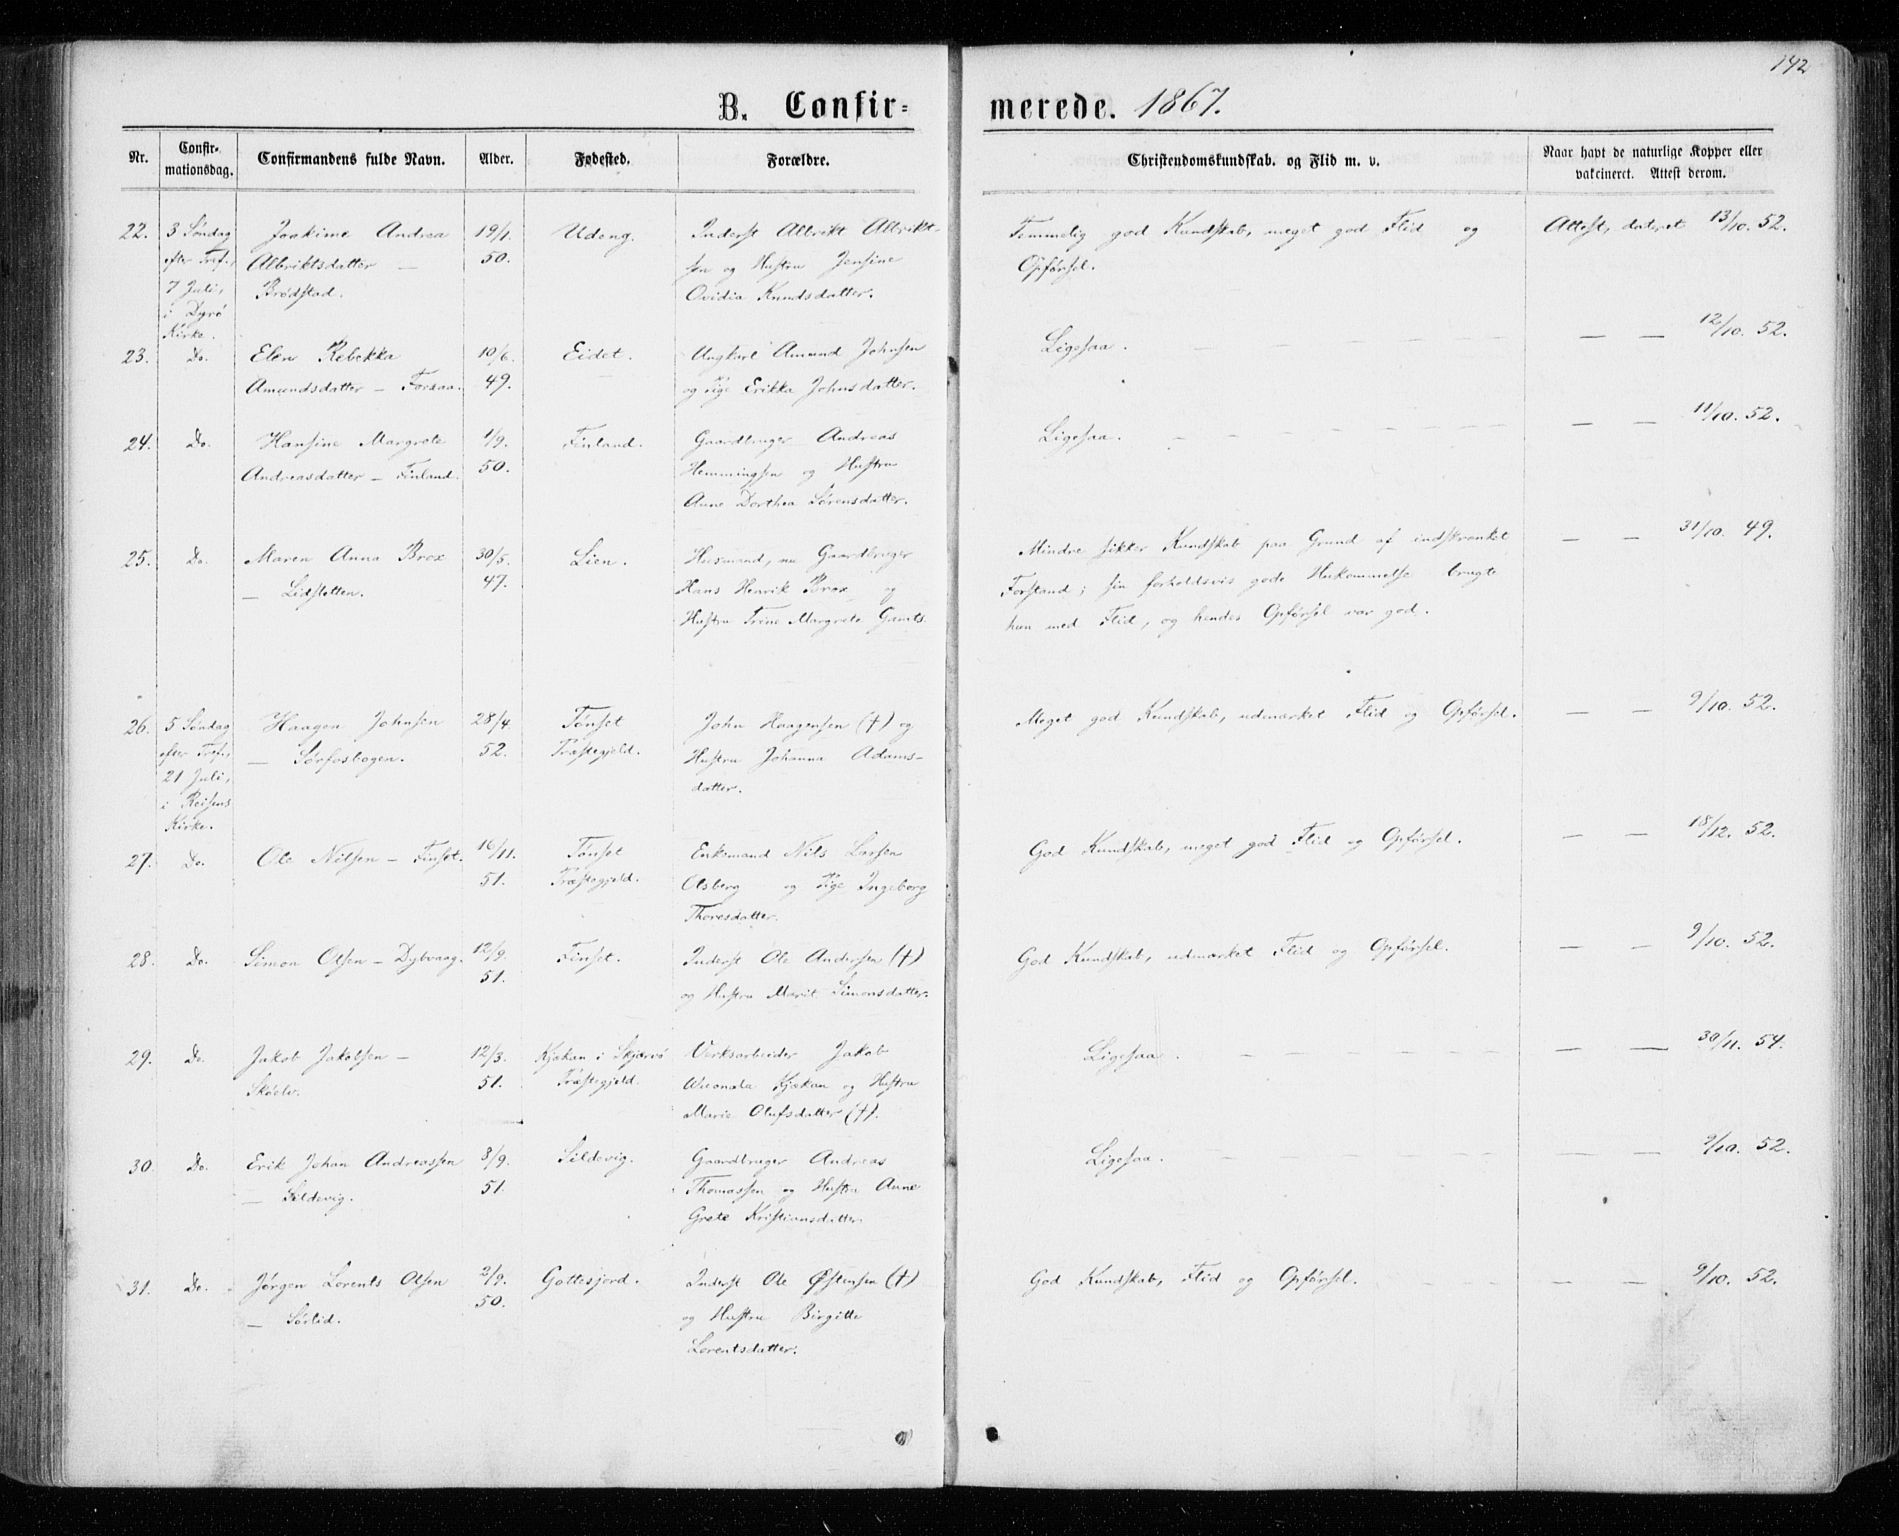 142
B. Confir=
merede. 1867.
Nr.
Confir-
mationsdag.
Confirmandens fulde Navn.
Alder.
Fødested.
Forældre.
Christendomskundskab. og Flid m. v.
Naar havt de naturlige Kopper eller
vakcineret. Attest derom.
22.
3 Søndag
efter Tref.,
7 Juli,
i Dyrø
Kirke.
Joakime Andrea
Albriktsdatter —
Brødstad.
19/1.
50.
Udeng.
Inderst Albrikt Albrikt-
sen og Hustru Jensine
Ovidia Knudsdatter.
Temmelig god Kundskab, meget god Flid og
Opførsel.
Attest, dateret 13/10. 52.
23.
Do.
Elen Rebekka
Amundsdatter — Forsaa.
10/6.
49.
Eidet.
Ungkarl Amund Johnsen
og Pige Erikka Johnsdatter.
Ligesaa. — — — —
— — 12/10. 52.
24.
Do.
Hansine Margrete
Andreasdatter — Finland.
1/9.
50.
Finland.
Gaardbruger Andreas
Hemmingsen og Hustru
Anne Dorthea Sørensdatter.
Ligesaa. — — — —
— — 11/10. 52.
25.
Do.
Maren Anna Brox
— Lidsletten.
30/5.
47.
Lien.
Husmand, nu Gaardbruger
Hans Henrik Brox og
Hustru Trine Margrete Gamts.
Mindre sikker Kundskab paa Grund af indskrænket
Forstand; sin forholdsvis gode Hukommelse brugte
hun med Flid, og hendes Opførsel var god.
— — 31/10. 49.
26.
5 Søndag
efter Tref.,
21 Juli,
i Reisens
Kirke.
Haagen Johnsen
— Sørfosbogen.
28/4.
52.
Tønset
Præstegjeld.
John Haagensen (†) og
Hustru Johanna Adams-
datter.
Meget god Kundskab, udmærket Flid og Opførsel.
— — 9/10. 52.
27.
Do.
Ole Nilsen — Finset.
16/11.
51.
Tønset
Præstegjeld.
Enkemand Nils Larsen
Olsberg og Pige Ingeborg
Thoresdatter.
God Kundskab, meget god Flid og Opførsel.
— — 18/12. 52.
28.
Do.
Simon Olsen — Dybvaag.
12/9.
51.
Finset.
Inderst Ole Andersen (†)
og Hustru Marit Simonsdatter.
God Kundskab, udmærket Flid og Opførsel.
— — 9/10. 52.
29.
Do.
Jakob Jakobsen —
Skøelv.
12/3.
51.
Kjækan i Skjærvø
Præstegjeld.
Verksarbeider Jakob
Kjækan og Hustru
Marie Olufsdatter (†).
Ligesaa. — — — —
— — 30/11. 54.
30.
Do.
Erik Johan Andreassen
— Sildevig.
8/9.
51.
Sildevig.
Gaardbruger Andreas
Thomassen og Hustru Anne
Grete Kristiansdatter.
Ligesaa. — — — —
— — 9/10. 52.
31.
Do.
Jørgen Lorents Olsen
— Sørlid.
2/9.
50.
Gottesjord.
Inderst Ole Østensen (†)
og Hustru Birgitte
Lorentsdatter.
God Kundskab, Flid og Opførsel.
— — 9/10. 52.